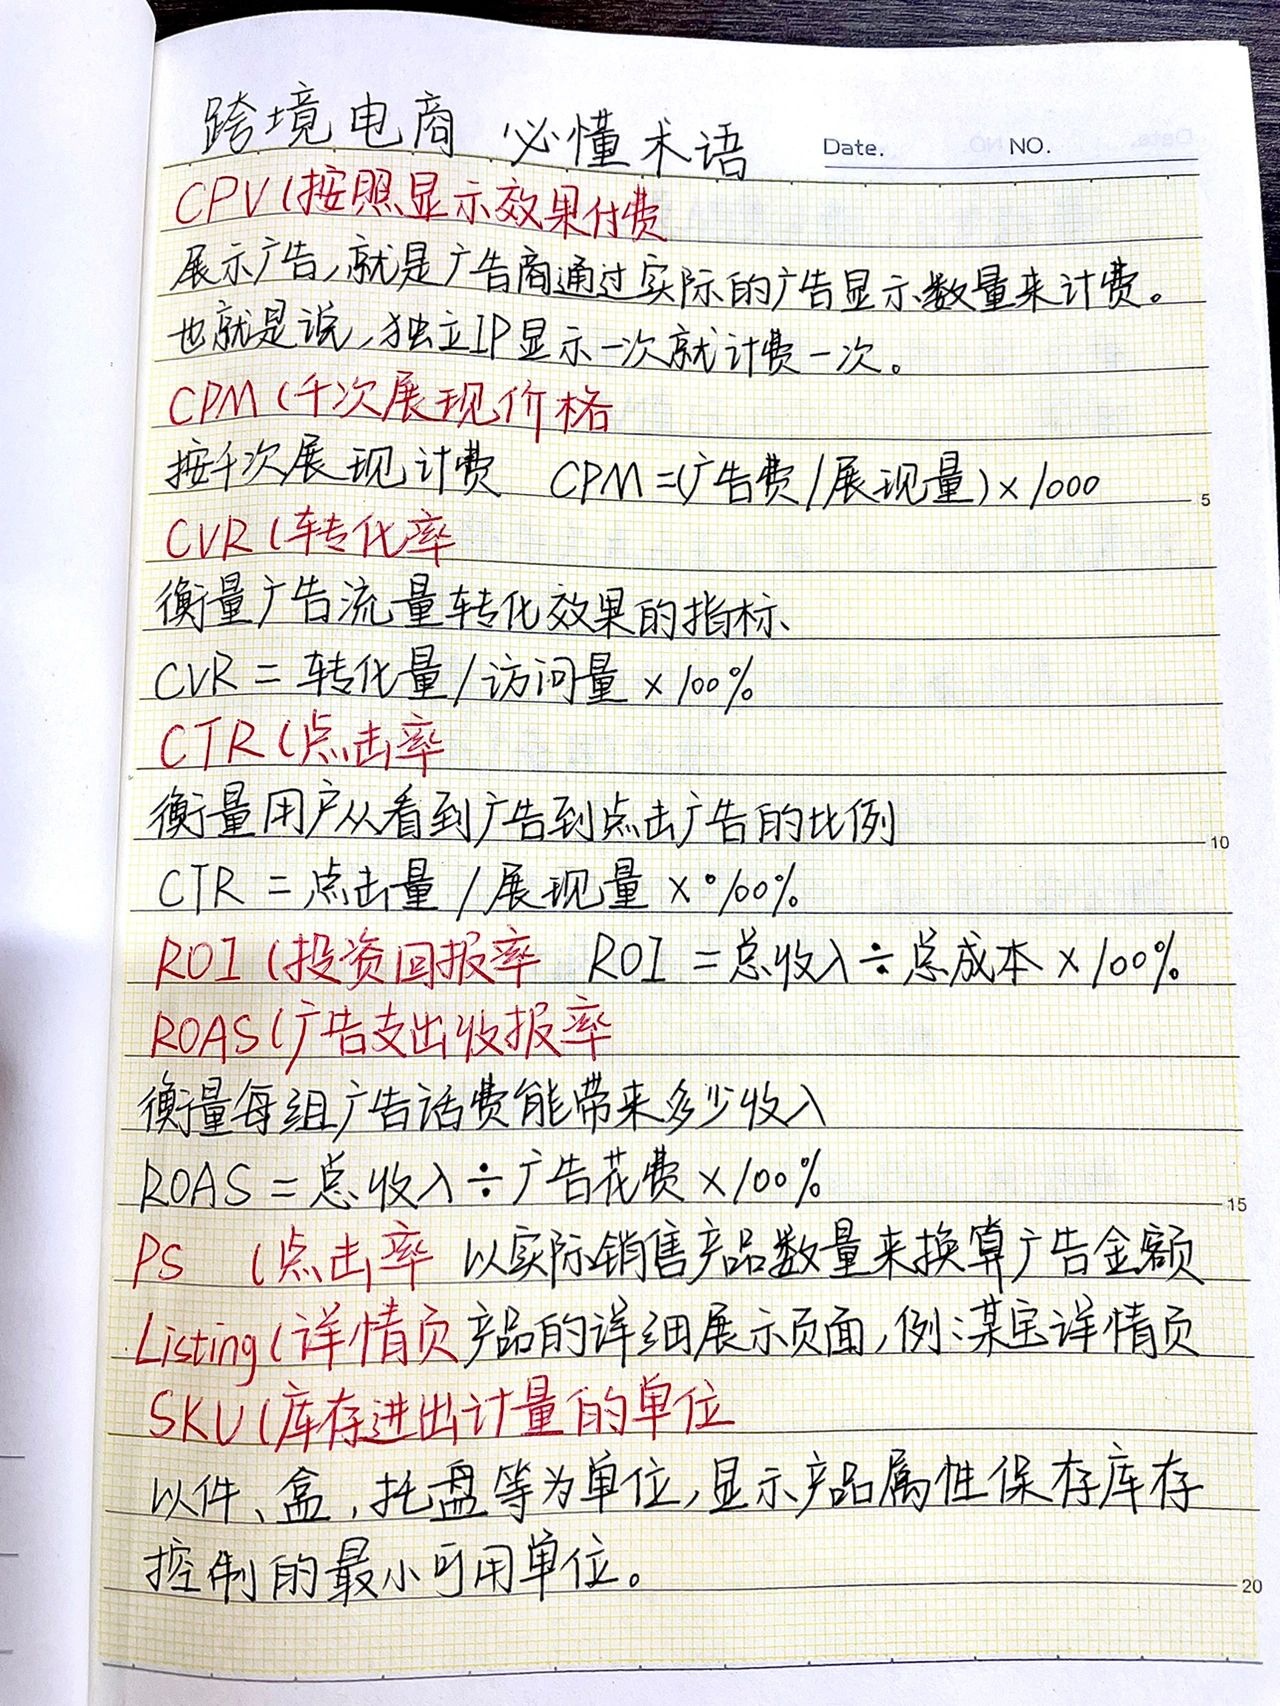 跨境电商 必懂术语
Date. NO.
CPV(按照显示效果付费
展示广告,就是广告商通过实际的广告显示数量来计费。
也就是说,独立IP显示一次就计费一次。
CPM(千次展现价格
按千次展现计费 CPM=(广告费/展现量)×1000
5
CVR(转化率
衡量广告流量转化效果的指标、
CVR=转化量/访问量×100%
CTR(点击率
衡量用户从看到广告到点击广告的比例
10
CTR=点击量/展现量×°100%
ROI(投资回报率 ROI=总收入÷总成本×100%
ROAS(广告支出收报率
衡量每组广告话费能带来多少收入
ROAS=总收入÷广告花费×100%
15
PS (点击率 以实际销售产品数量来换算广告金额
Listing(详情页 产品的详细展示页面,例:某宝详情页
SKU(库存进出计量的单位
以件、盒,托盘等为单位,显示产品属性保存库存
控制的最小可用单位。
20